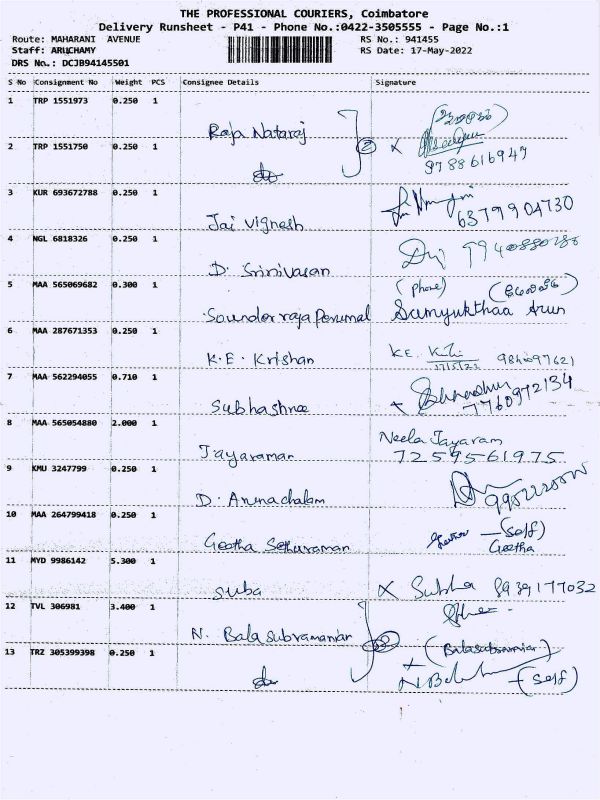 THE PROFESSIONAL COURIERS, Coimbatore
Delivery Runsheet - P41 - Phone No.:0422-3505555 - Page No.:1
Route: MAHARANI AVENUE RS No.: 941455
Staff: ARUCHAMY RS Date: 17-May-2022
DRS No.: DCJB94145501
S No Consignment No Weight PCS Consignee Details Signature
1 TRP 1551973 0.250 1
Raja Nataraj
2 TRP 1551750 0.250 1 2 X
9788616947
3 KUR 693672788 0.250 1
Jai Vignesh 6379904730
4 NGL 6818326 0.250 1
D. Srinivasan
5 MAA 565069682 0.300 1 (Phone)
Sounder raja Perumal Samyukthaa Arun
6 MAA 287671353 0.250 1
K.E. Krishan K.E.
7 MAA 562294055 0.710 1
Subhashree 7760972134
8 MAA 565054880 2.000 1 Neela Jayaram
Jayaraman 7259561975
9 KMU 3247799 0.250 1
D. Arunachalam
10 MAA 264799418 0.250 1 (Self)
Geetha Sethuraman Geetha
11 MYD 9986142 5.300 1
Suba X Subha 8939177032
12 TVL 306981 3.400 1
N. Balasubramanian
13 TRZ 305399398 0.250 1 (Balasubramanian)
(Self)